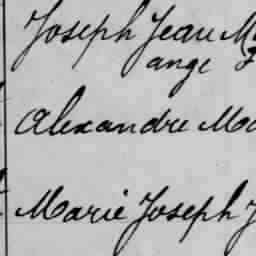 Joseph Jean M
ange F
Alexandre Ma
Marie Joseph J